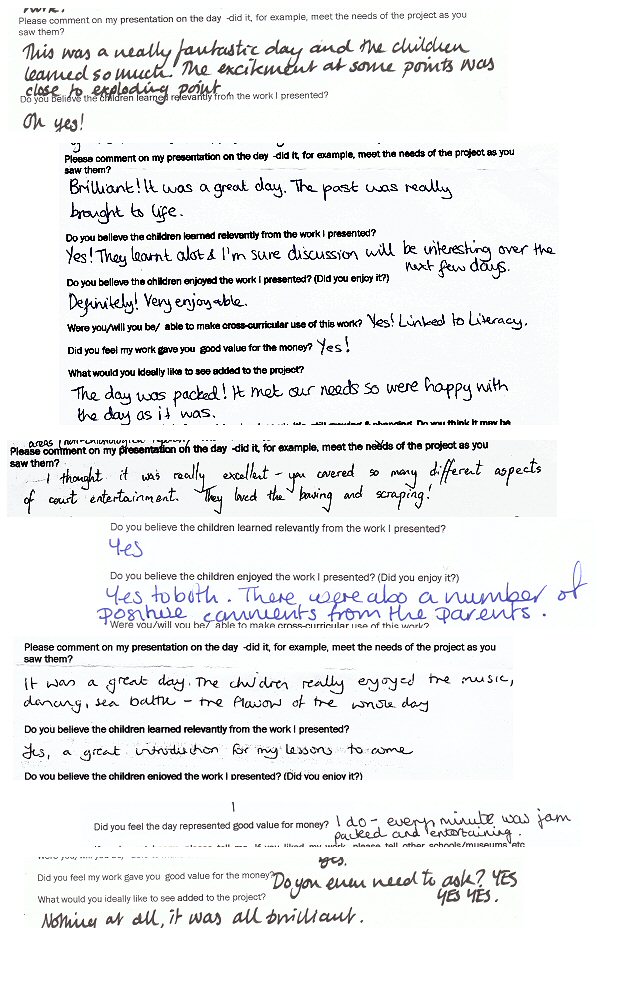 Please comment on my presentation on the day -did it, for example, meet the needs of the project as you
saw them?
This was a really fantastic day and the children
learned so much. The excitement at some points was
close to exploding point.
Do you believe the children learned relevantly from the work I presented?
Oh yes!
Please comment on my presentation on the day -did it, for example, meet the needs of the project as you
saw them?
Brilliant! It was a great day. The past was really
brought to life.
Do you believe the children learned relevantly from the work I presented?
Yes! They learnt alot & I'm sure discussion will be interesting over the
next few days.
Do you believe the children enjoyed the work I presented? (Did you enjoy it?)
Definitely! Very enjoyable.
Were you/will you be/ able to make cross-curricular use of this work? Yes! Linked to Literacy.
Did you feel my work gave you good value for the money? Yes!
What would you ideally like to see added to the project?
The day was packed! It met our needs so were happy with
the day as it was.
Please comment on my presentation on the day -did it, for example, meet the needs of the project as you
saw them?
I thought it was really excellent - you covered so many different aspects
of court entertainment. They loved the bowing and scraping!
Do you believe the children learned relevantly from the work I presented?
Yes
Do you believe the children enjoyed the work I presented? (Did you enjoy it?)
Yes to both. There were also a number of
positive comments from the parents.
Were you/will you be/ able to make cross-curricular use of this work?
Please comment on my presentation on the day -did it, for example, meet the needs of the project as you
saw them?
It was a great day. The children really enjoyed the music,
dancing, sea battle - the flavour of the whole day
Do you believe the children learned relevantly from the work I presented?
Yes, a great introduction for my lessons to come
Do you believe the children enjoyed the work I presented? (Did you enjoy it?)
Did you feel the day represented good value for money? I do - every minute was jam
packed and entertaining.
please tell other schools/museums etc
yes.
Did you feel my work gave you good value for the money? Do you even need to ask? YES
YES YES.
What would you ideally like to see added to the project?
Nothing at all, it was all brilliant.